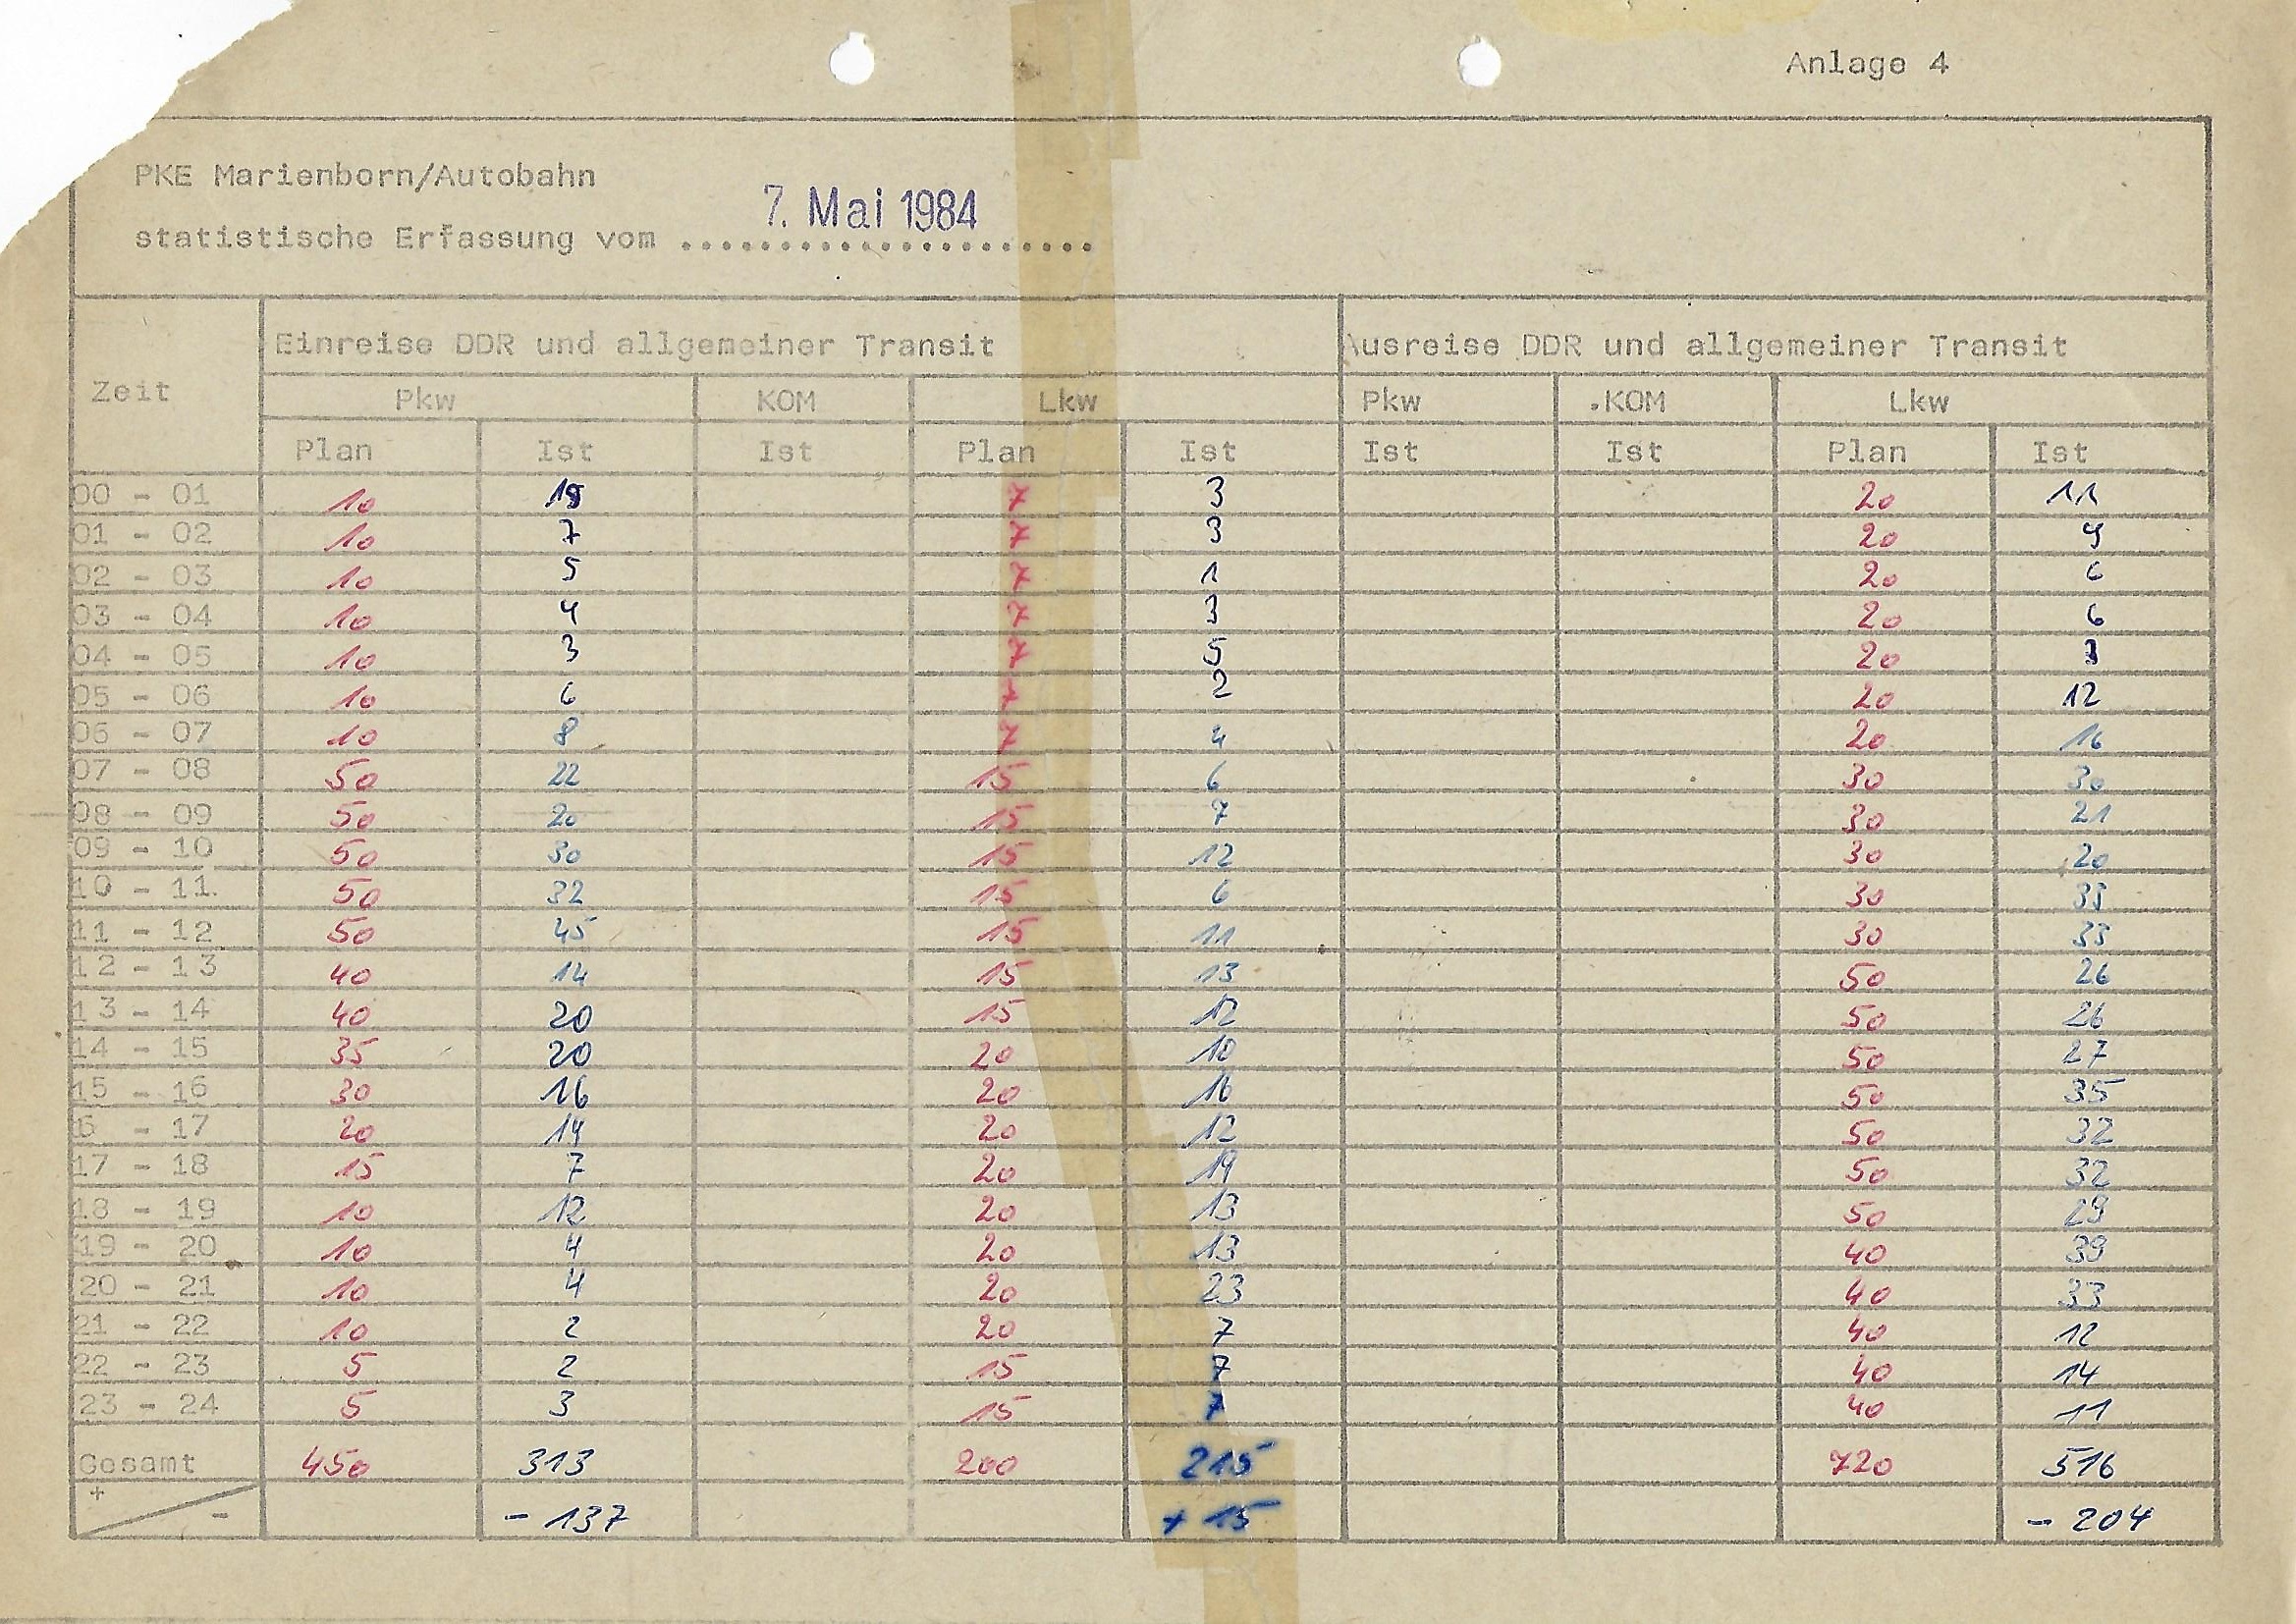 Anlage 4
PKE Marienborn/Autobahn
statistische Erfassung vom 7. Mai 1984
Einreise DDR und allgemeiner Transit Ausreise DDR und allgemeiner Transit
Zeit
Pkw KOM Lkw Pkw .KOM Lkw
Plan Ist Ist Plan Ist Ist Ist Plan Ist
00 - 01 10 7 3 20 11
01 - 02 10 7 7 3 20 9
02 - 03 10 5 7 1 20 6
03 - 04 10 4 7 3 20 6
04 - 05 10 3 7 5 20
05 - 06 10 6 7 2 20 12
06 - 07 10 8 7 4 20 16
07 - 08 50 22 15 6 30 30
08 - 09 50 20 15 7 30 21
09 - 10 50 30 15 12 30 20
10 - 11. 50 32 15 6 30 33
11 - 12 50 45 15 11 30 33
12 - 13 40 14 15 13 50 26
13 - 14 40 20 15 12 50 26
14 - 15 35 20 20 10 50 27
15 - 16 30 16 20 16 50 35
6 - 17 20 14 20 12 50 32
17 - 18 15 7 20 19 50 32
18 - 19 10 12 20 13 50 29
19 - 20 10 4 20 13 40 39
20 - 21 10 4 20 23 40 33
21 - 22 10 2 20 7 40 12
22 - 23 5 2 15 7 40 14
23 - 24 5 3 15 7 40 11
Gesamt 450 313 200 215 720 516
+ - - 137 + 15 - 204